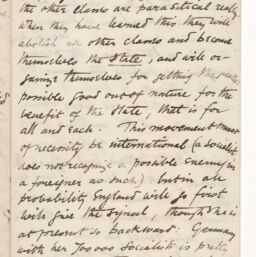 the other classes are parasitical really
when they have learned this they will
abolish all other classes and become
themselves the State, and will or-
ganize themselves for getting the
possible good out of nature for the
benefit of the State, that is for
all and each. This movement must
of necessity be international (a Socialist
does not recognize a possible enemy in
a foreigner as such) but in all
probability England will go first
will give the signal, though she is
at present so backward: Germany
with her 700000 Socialists is pretty